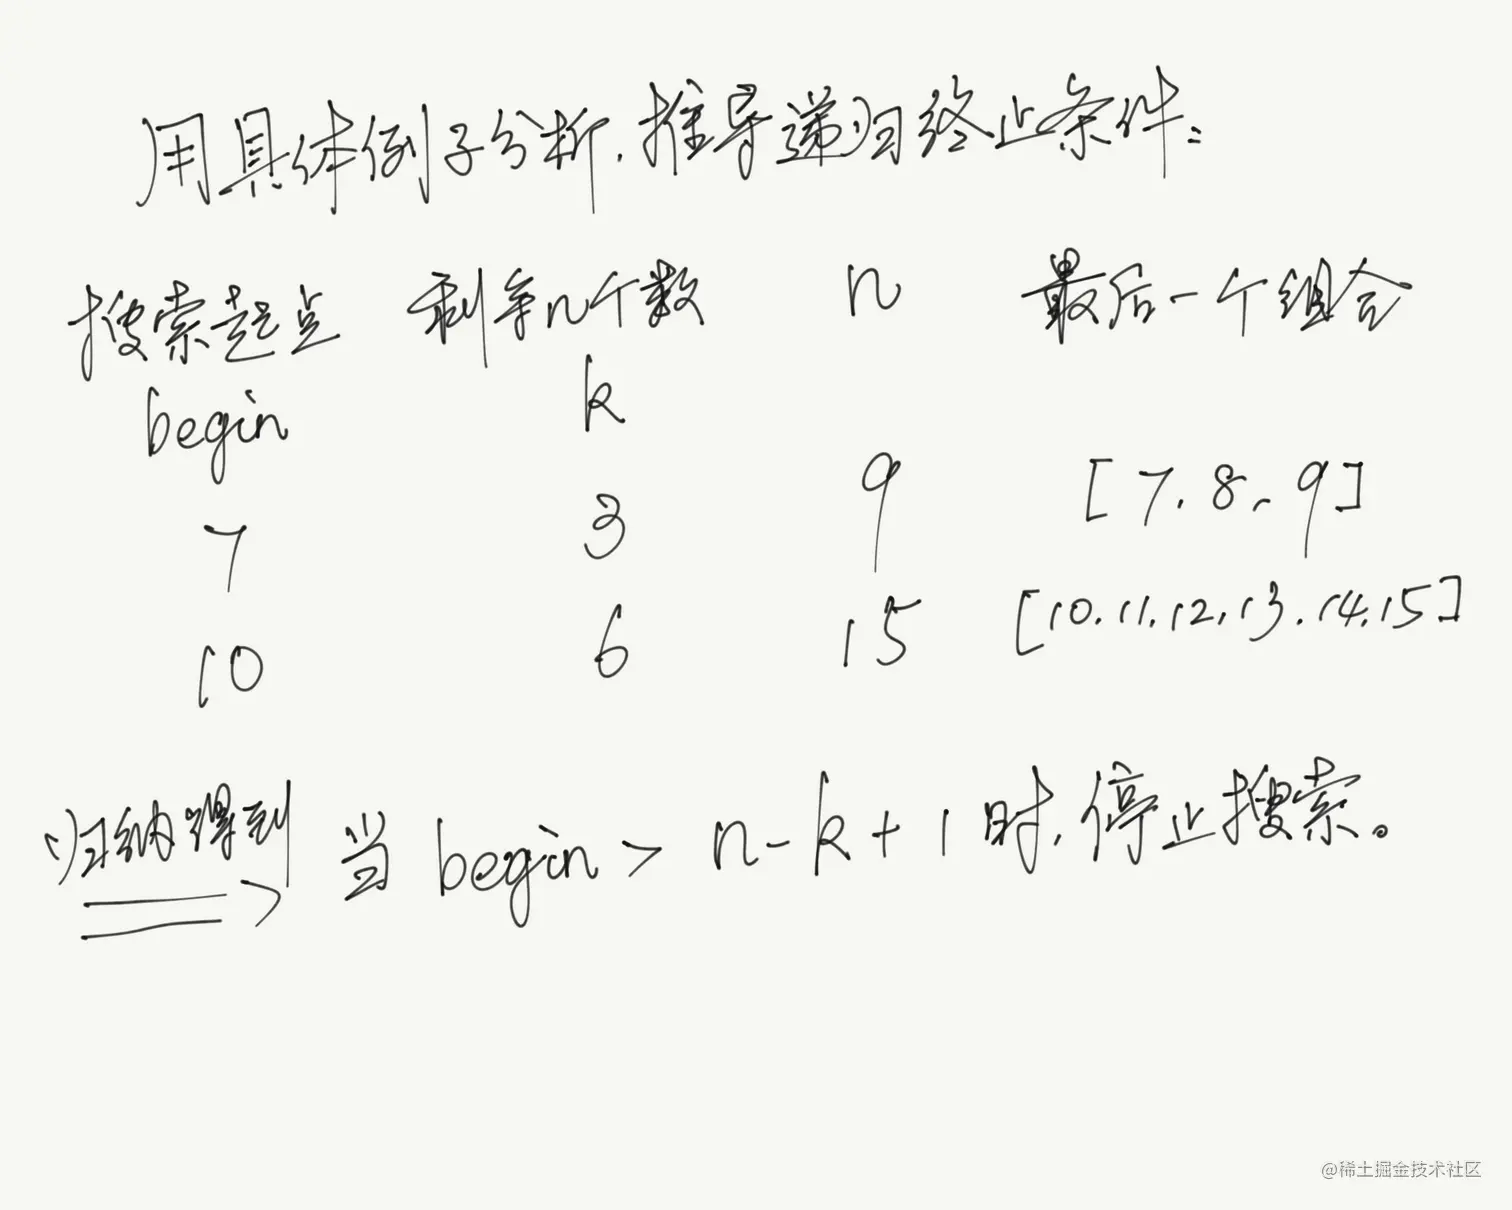 用具体例子分析,推导递归终止条件:
搜索起点 剩余n个数 n 最后一个组合
begin k
7 3 9 [7.8.9]
10 6 15 [10.11.12.13.14.15]
归纳得到 当 begin > n-k+1时,停止搜索。
@稀土掘金技术社区